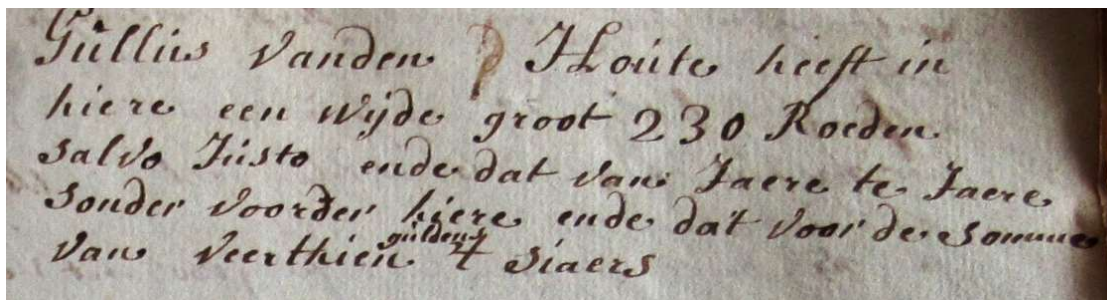 Gullius vanden Houte heeft in
hiere een wijde groot 230 Roeden
salvo Justo ende dat van Jaere te Jaere
sonder voorder hiere ende dat voor de somme
van veerthien guldens siaers